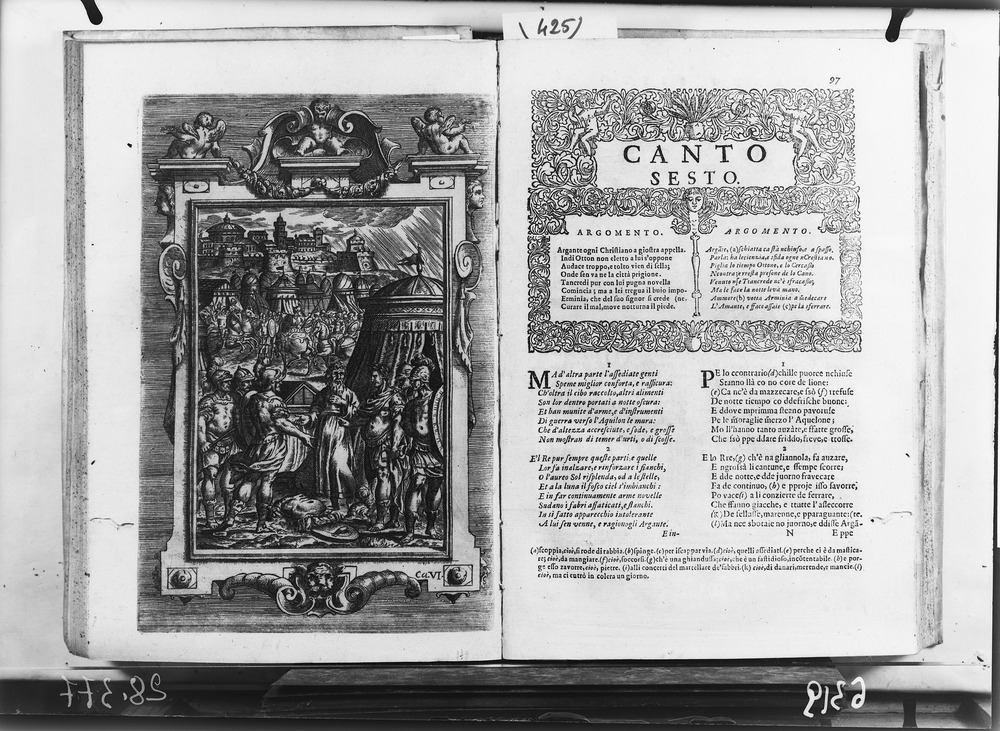 (425)
97
CANTO
SESTO.
ARGOMENTO.
Argante ogni Christiano a giostra appella.
Indi Otton non eletto a lui s'oppone
Audace troppo, e tolto vien di sella;
Onde sen va ne la città prigione.
Tancredi pur con lui pugna novella
Comincia; ma a lei tregua il buio impo-
Erminia, che del suo signor si crede (ne.
Curare il mal, move notturna il piede.
ARGOMENTO.
Argāte, (a) schiatta ca stà nchiuso, e a spasso,
Parla: ha lecienzia, e sfida ogne nCrestiano.
Piglia lo tiempo Ottone, e lo
Ncontra, e rresta presone de lo Cano.
Venuto nfe Trancrede nc'è sfracasso,
Ma le face la notte levà mano.
Ammore (b) votta Arminia a mmedecare
L'Amante, e (c) pe la sferrare.
1
MA d'altra parte l'assediate genti
Speme miglior conforta, e rassicura:
Ch'oltra il cibo raccolto, altri alimenti
Son lor dentro portati a notte oscura:
Et han munite d'arme, e d'instrumenti
Di guerra verso l'Aquilon le mura:
Che d'altezza accresciute, e sode, e grosse
Non mostran di temer d'urti, o di scosse.
2
E'l Re pur sempre queste parti: e quelle
Lor fa inalzare, e rinforzare i fianchi,
O l'aureo Sol risplenda, od a le stelle,
Et a la luna il fosco ciel s'imbianchi:
E in far continuamente arme novelle
Sudano i fabri affaticati, e stanchi.
In sì fatto apparecchio intolerante
A lui sen venne, e ragionogli Argante.
E in-
1
PE lo ccontrario (d) chille puorce nchiuse
Stanno llà co no core de lione:
(e) Ca nc'è da mazzecare, e ssò (f) trefuse
De notte tiempo co ddefrische buone:
E ddove mprimma steano pavoruse
Pe le moraglie mierzo l'Aquelone;
Mo ll'hanno tanto auzate, e ffatte grosse,
Che ssò ppe ddare friddo, freve, e ttosse.
2
E lo Rre, (g) ch'è na gliannola, fa auzare,
E ngrossà li cantune, e ssempe scorre;
E dde notte, e dde juorno fravecare
Fa de continuo, (h) e pproje isso savorre,
Po vace (i) a li conzierte de ferrare,
Che ffanno giacche, e ttatte l'asseccorre
(k) De sellasse, marenne, e pparaguante: tte.
(l) Ma nce sbotaie no juorno, e ddisse Argā-
N
E ppe
(a) scoppia, cioè, si rode di rabbia. (b) spinge. (c) per iscappar via. (d) cioè, quelli assediati. (e) perche ci è da mastica-
re; cioè, da mangiare. (f) cioè, soccorsi. (g) ch'è una ghiandussa; cioè, che è un fastidioso, incōtentabile. (h) e por-
ge esso zavorre, cioè, pietre. (i) alli concerti del martellare de' fabbri. (k) cioè, di danari, merende, e mancie. (l)
cioè, ma ci entrò in colera un giorno.
Ca. VI.
28.377
6319